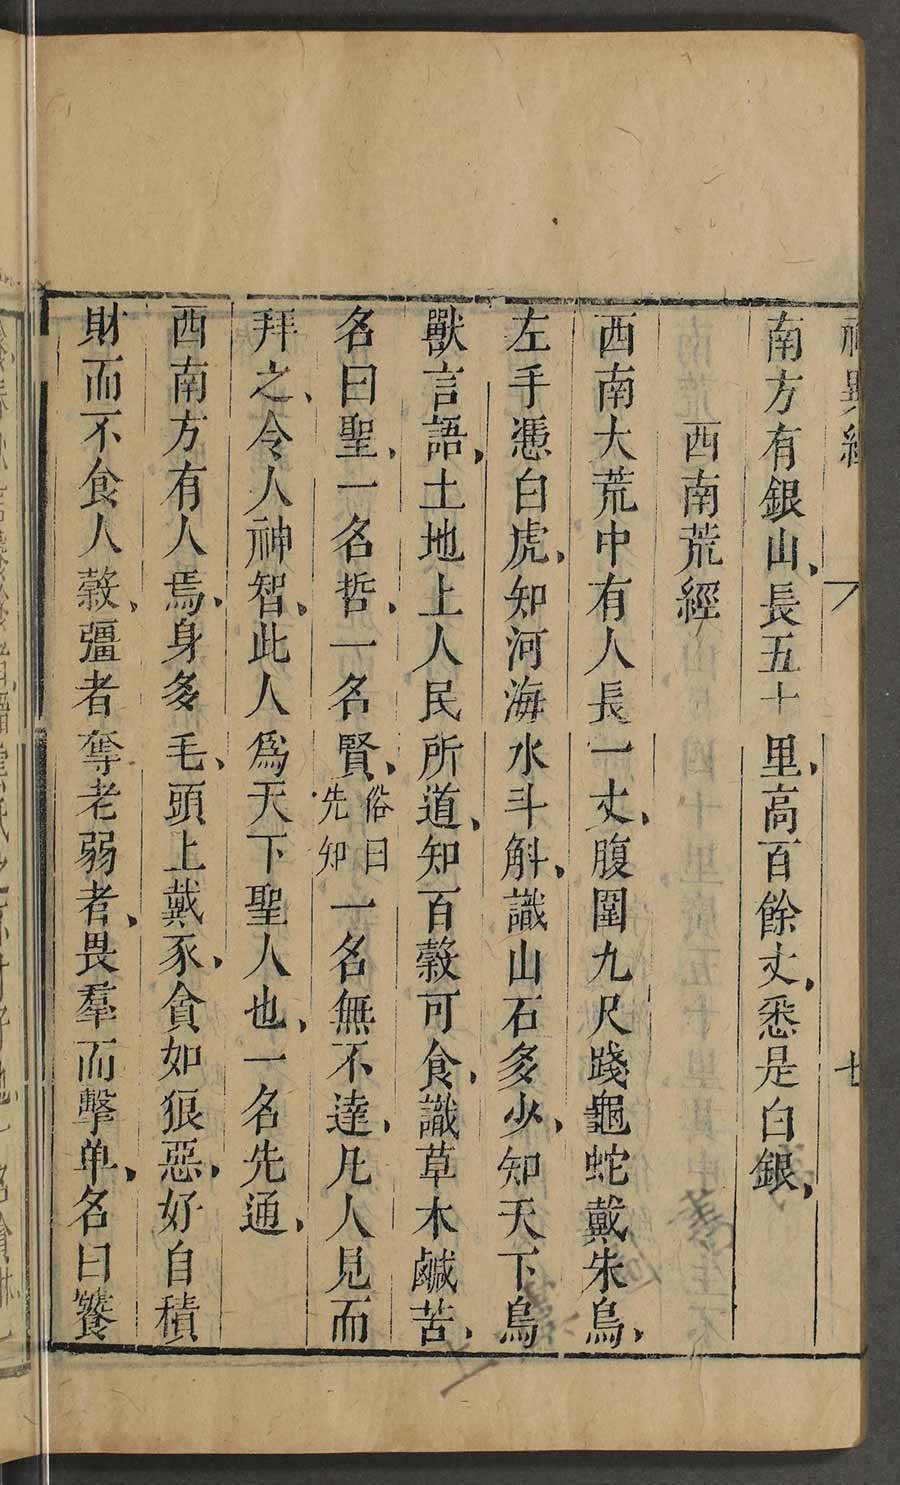 神異經 七
南方有銀山、長五十里、高百餘丈、悉是白銀、
西南荒經
西南大荒中有人長一丈、腹圍九尺踐龜蛇戴朱鳥、
左手憑白虎、知河海水斗斛、識山石多少、知天下鳥
獸言語、土地上人民所道、知百穀可食、識草木鹹苦、
名曰聖、一名哲、一名賢、俗曰先知一名無不達、凡人見而
拜之、令人神智、此人爲天下聖人也、一名先通、
西南方有人焉、身多毛、頭上戴豕、貪如狠惡、好自積
財而不食人穀、彊者奪老弱者、畏羣而擊单、名曰饕